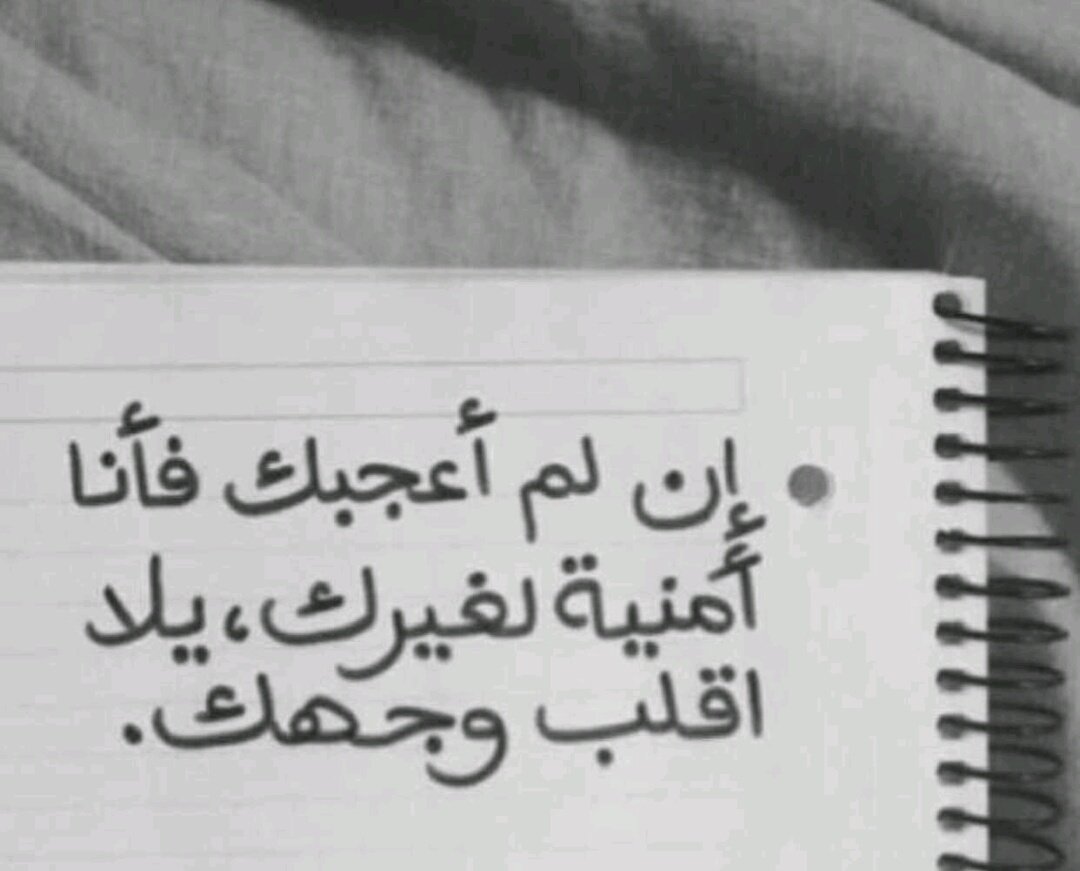 إن لم أعجبك فأنا
أمنية لغيرك، يلا
اقلب وجهك.